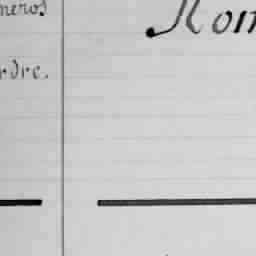 méros
rdre.
Nom